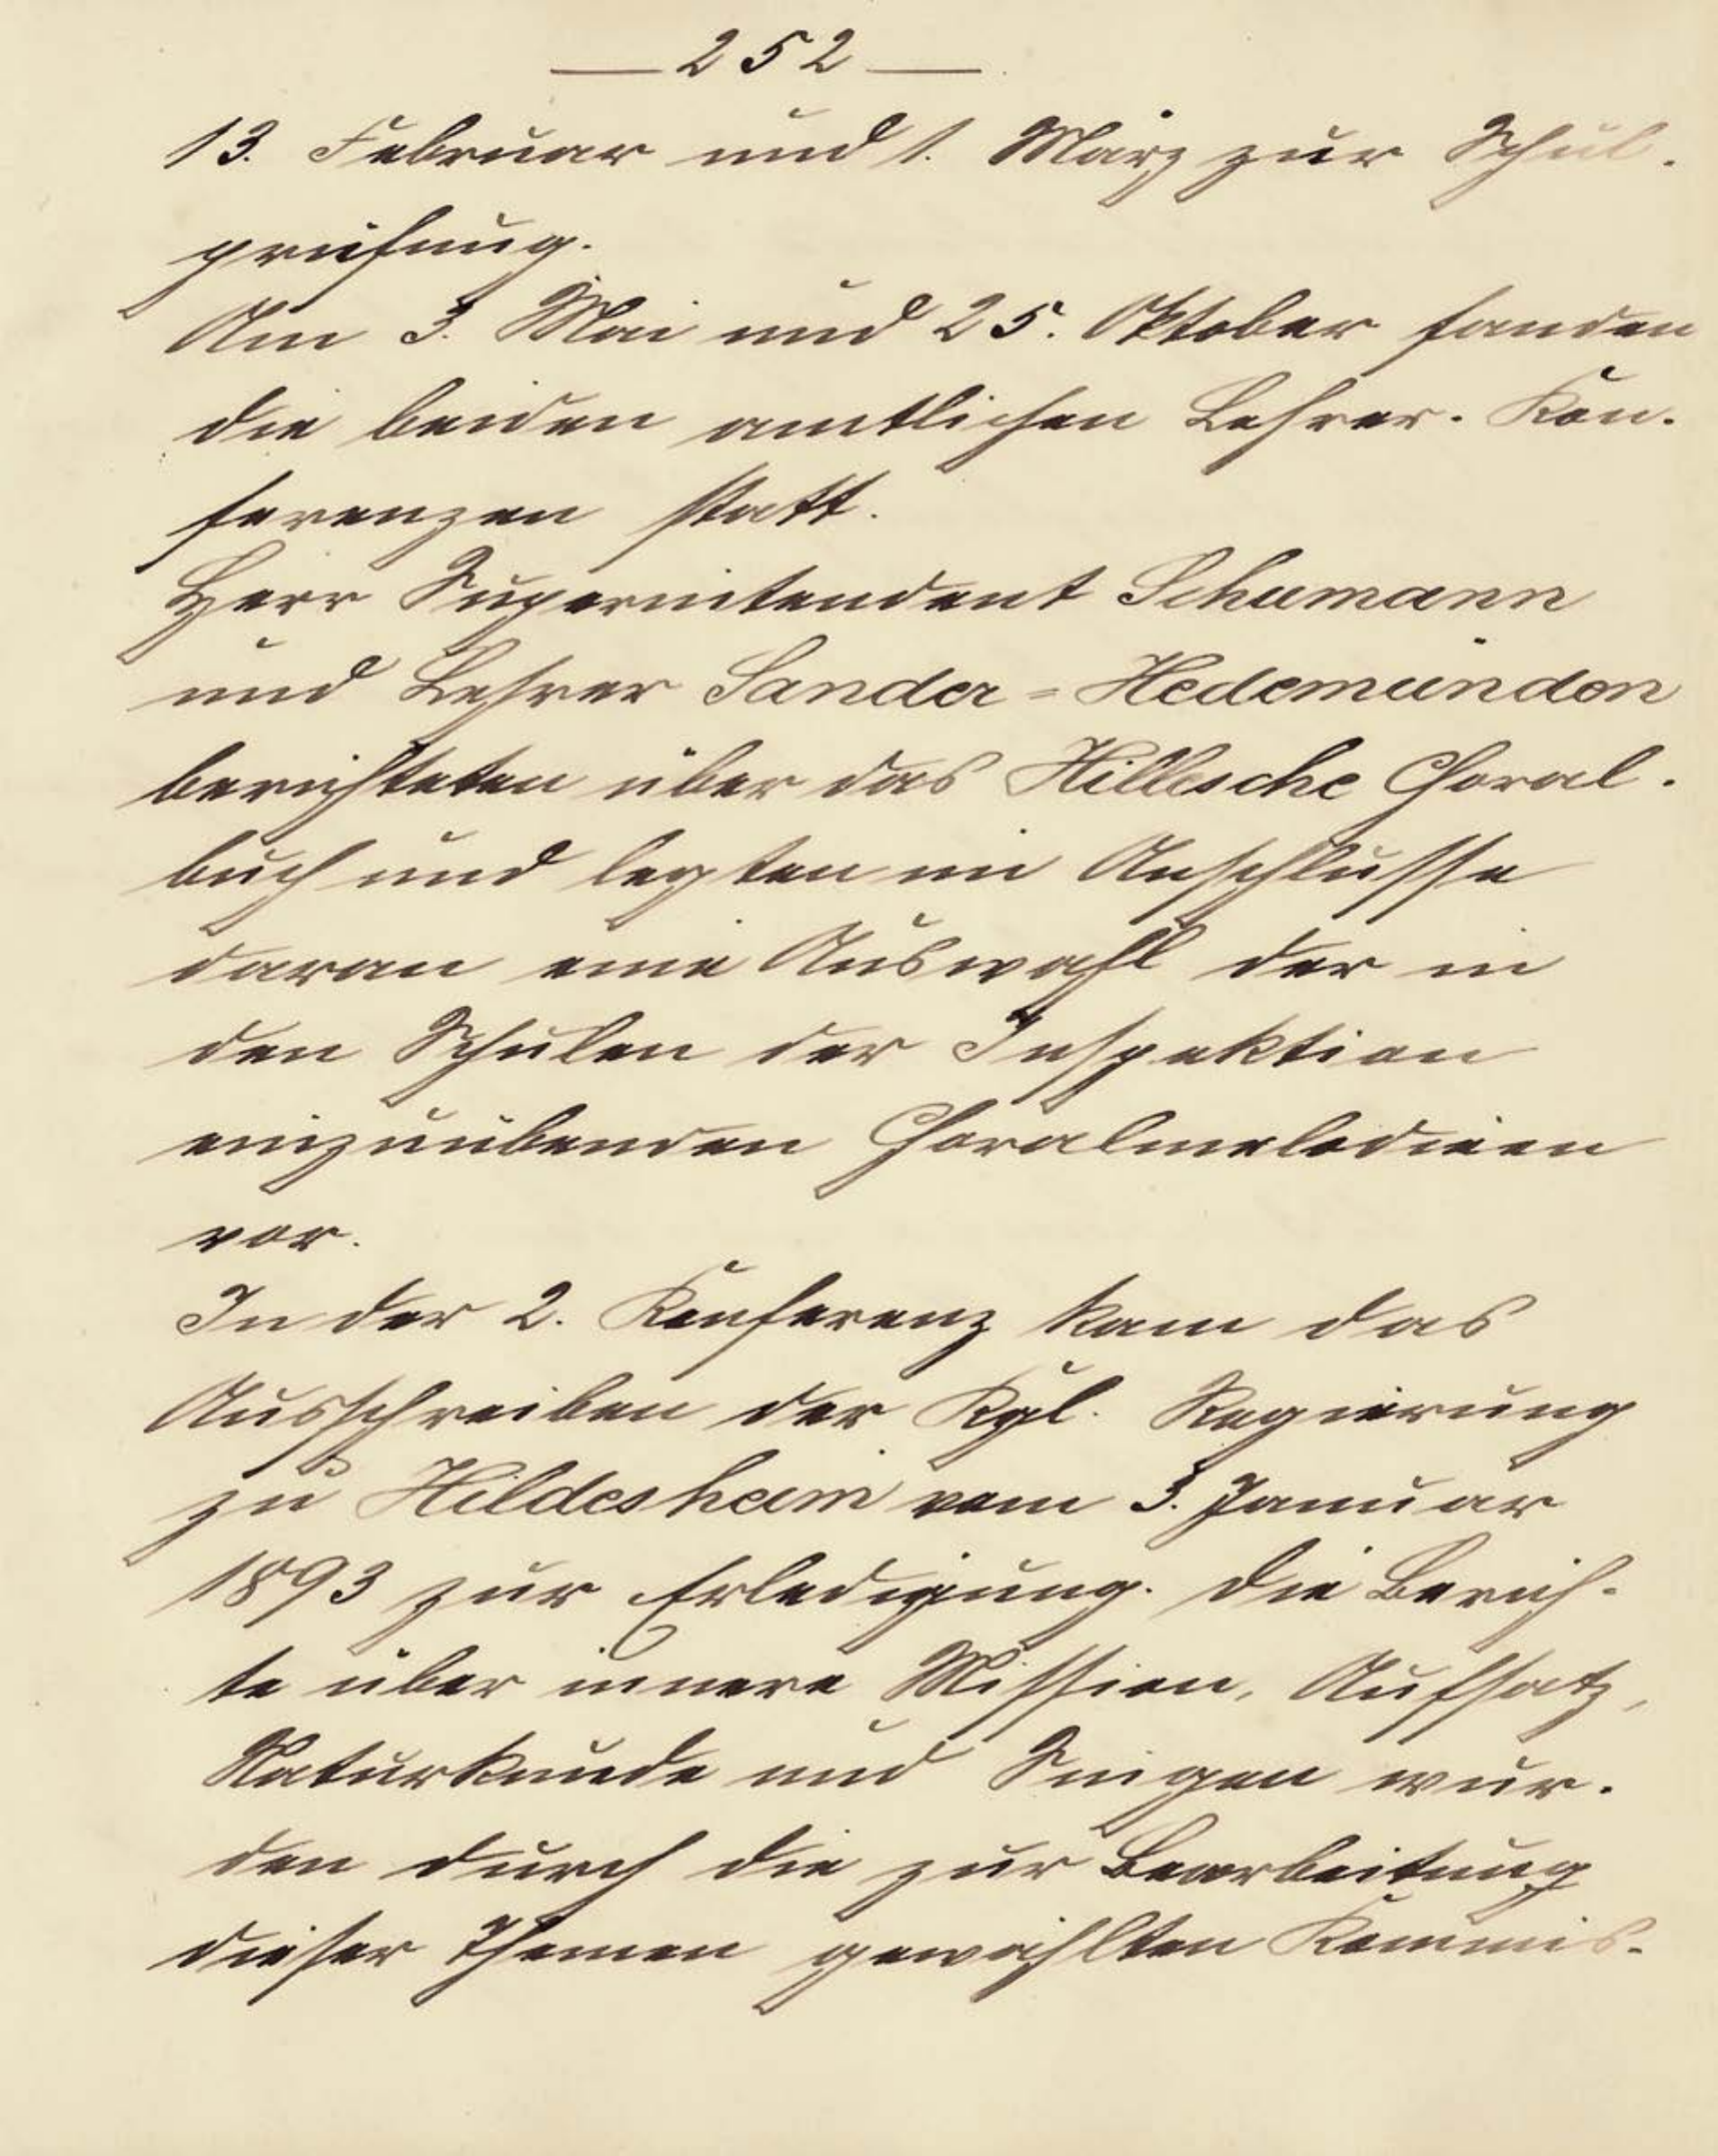 — 252 —
13. Februar und 1. März zur Schul-
prüfung.
Am 3. Mai und 25. Oktober fanden
die beiden amtlichen Lehrer-Kon-
ferenzen statt.
Herr Superintendent Schumann
und Lehrer Sander-Hedemünden
berichteten über das Hillesche Choral-
buch und legten im Anschlusse
daran eine Auswahl der in
den Schulen der Inspektion
einzuübenden Choralmelodieen
vor.
In der 2. Konferenz kam das
Ausschreiben der Kgl. Regierung
zu Hildesheim vom 3. Januar
1893 zur Erledigung. Die Berich-
te über innere Mission, Aufsatz,
Naturkunde und Singen wur-
den durch die zur Bearbeitung
dieser Themen gewählten Kommis-